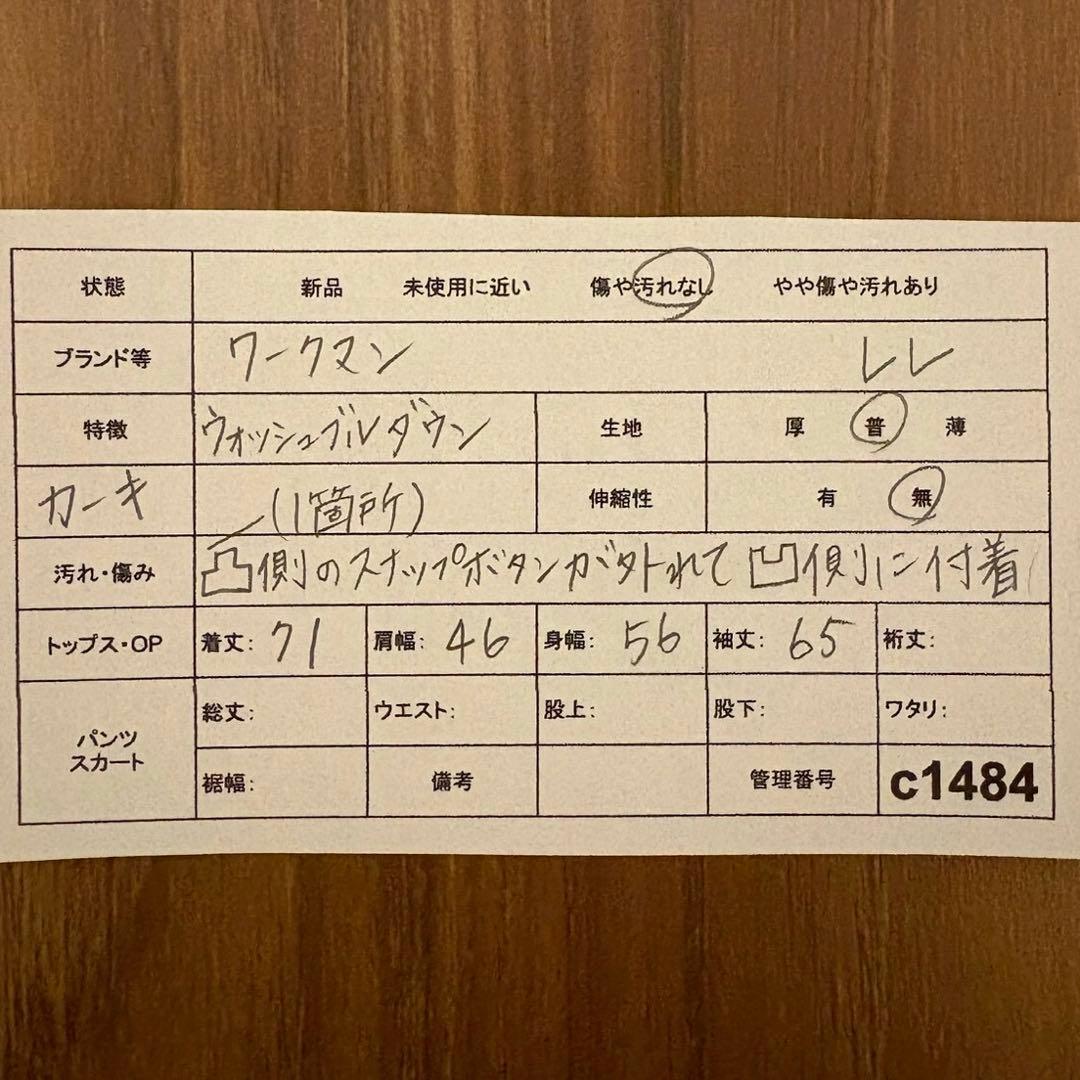 状態 新品 未使用に近い 傷や汚れなし やや傷や汚れあり
ブランド等 ワークマン LL
特徴 ウォッシュブルダウン 生地 厚 普 薄
カーキ (1箇所) 伸縮性 有 無
汚れ・傷み 凸側のスナップボタンが外れて凹側に付着
トップス・OP 着丈: 71 肩幅: 46 身幅: 56 袖丈: 65 裄丈:
パンツ スカート 総丈: ウエスト: 股上: 股下: ワタリ:
裾幅: 備考 管理番号 c1484